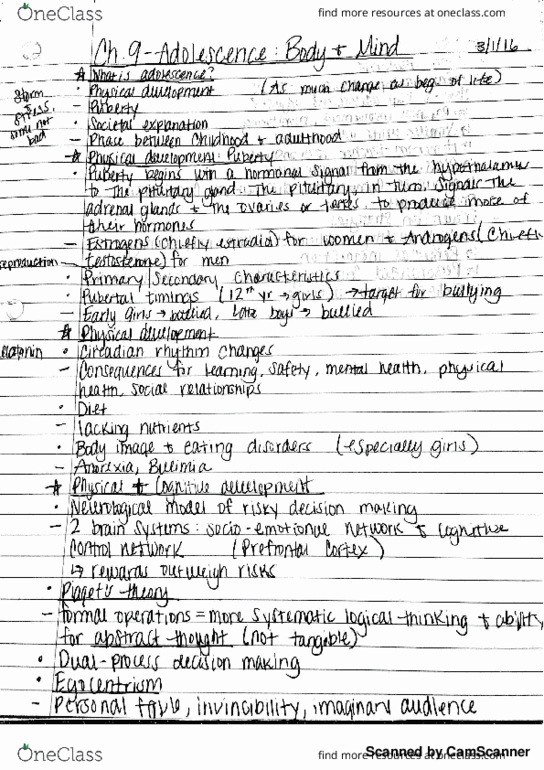 OneClass
find more resources at oneclass.com
Ch. 9 - Adolescence: Body + Mind 3/1/16
What is adolescence?
Physical development (As much change as beg. of life)
storm
stress,
only not
bad
- Puberty
Societal explanation
- Phase between childhood + adulthood
Physical development: Puberty
Puberty begins with a hormonal signal from the hypothalamus
to the pituitary gland. The pituitary, in turn, signals the
adrenal glands + the ovaries or testes to produce more of
their hormones
- Estrogens (chiefly estradiol) for women + Androgens (chiefly
reproduction testosterone) for men
Primary/Secondary characteristics
Pubertal timings (12th yr → girls) → target for bullying
- Early girls → bullied, late boys → bullied
Physical development
melatonin • Circadian rhythm changes
- Consequences for learning, safety, mental health, physical
health, social relationships
• Diet
- lacking nutrients
• Body image + eating disorders (especially girls)
- Anorexia, Bulimia
Physical + Cognitive development
• Neurological model of risky decision making
- 2 brain systems: socio-emotional network + cognitive
control network (Prefrontal Cortex)
↳ rewards outweigh risks
• Piaget's theory
- formal operations = more systematic logical thinking + ability
for abstract thought (not tangible)
• Dual-process decision making
• Egocentrism
- Personal fable, invincibility, imaginary audience
OneClass
find more resources at oneclass.com
Scanned by CamScanner